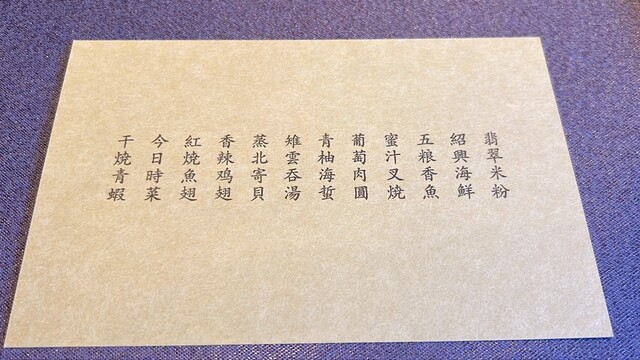 翡翠米粉
紹興海鮮
五粮香魚
蜜汁叉燒
葡萄肉圓
青柚海蜇
雉雲吞湯
蒸北寄貝
香辣鸡翅
紅燒魚翅
今日時菜
干燒青蝦